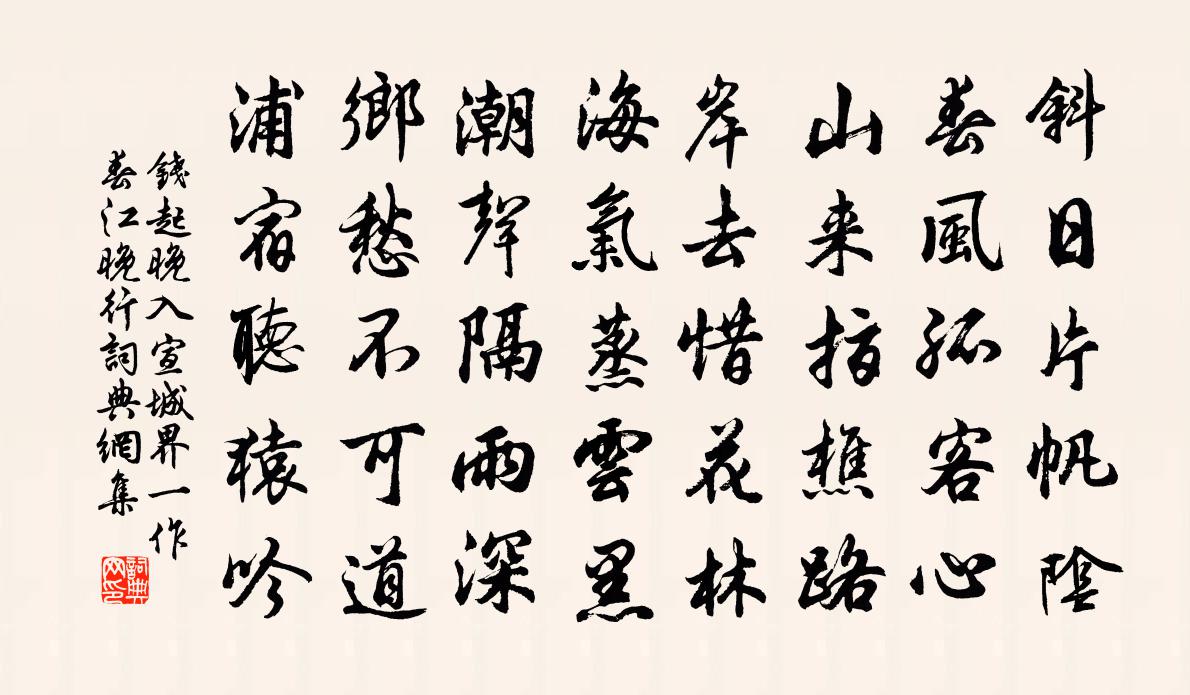 斜日片帆陰
春風孤客心
山来指樵路
岸去惜花林
海氣蒸雲黑
潮聲隔雨深
鄉愁不可道
浦宿聽猿吟
錢起晚入宣城界一作
春江晚行詞典網集
詞典
网印